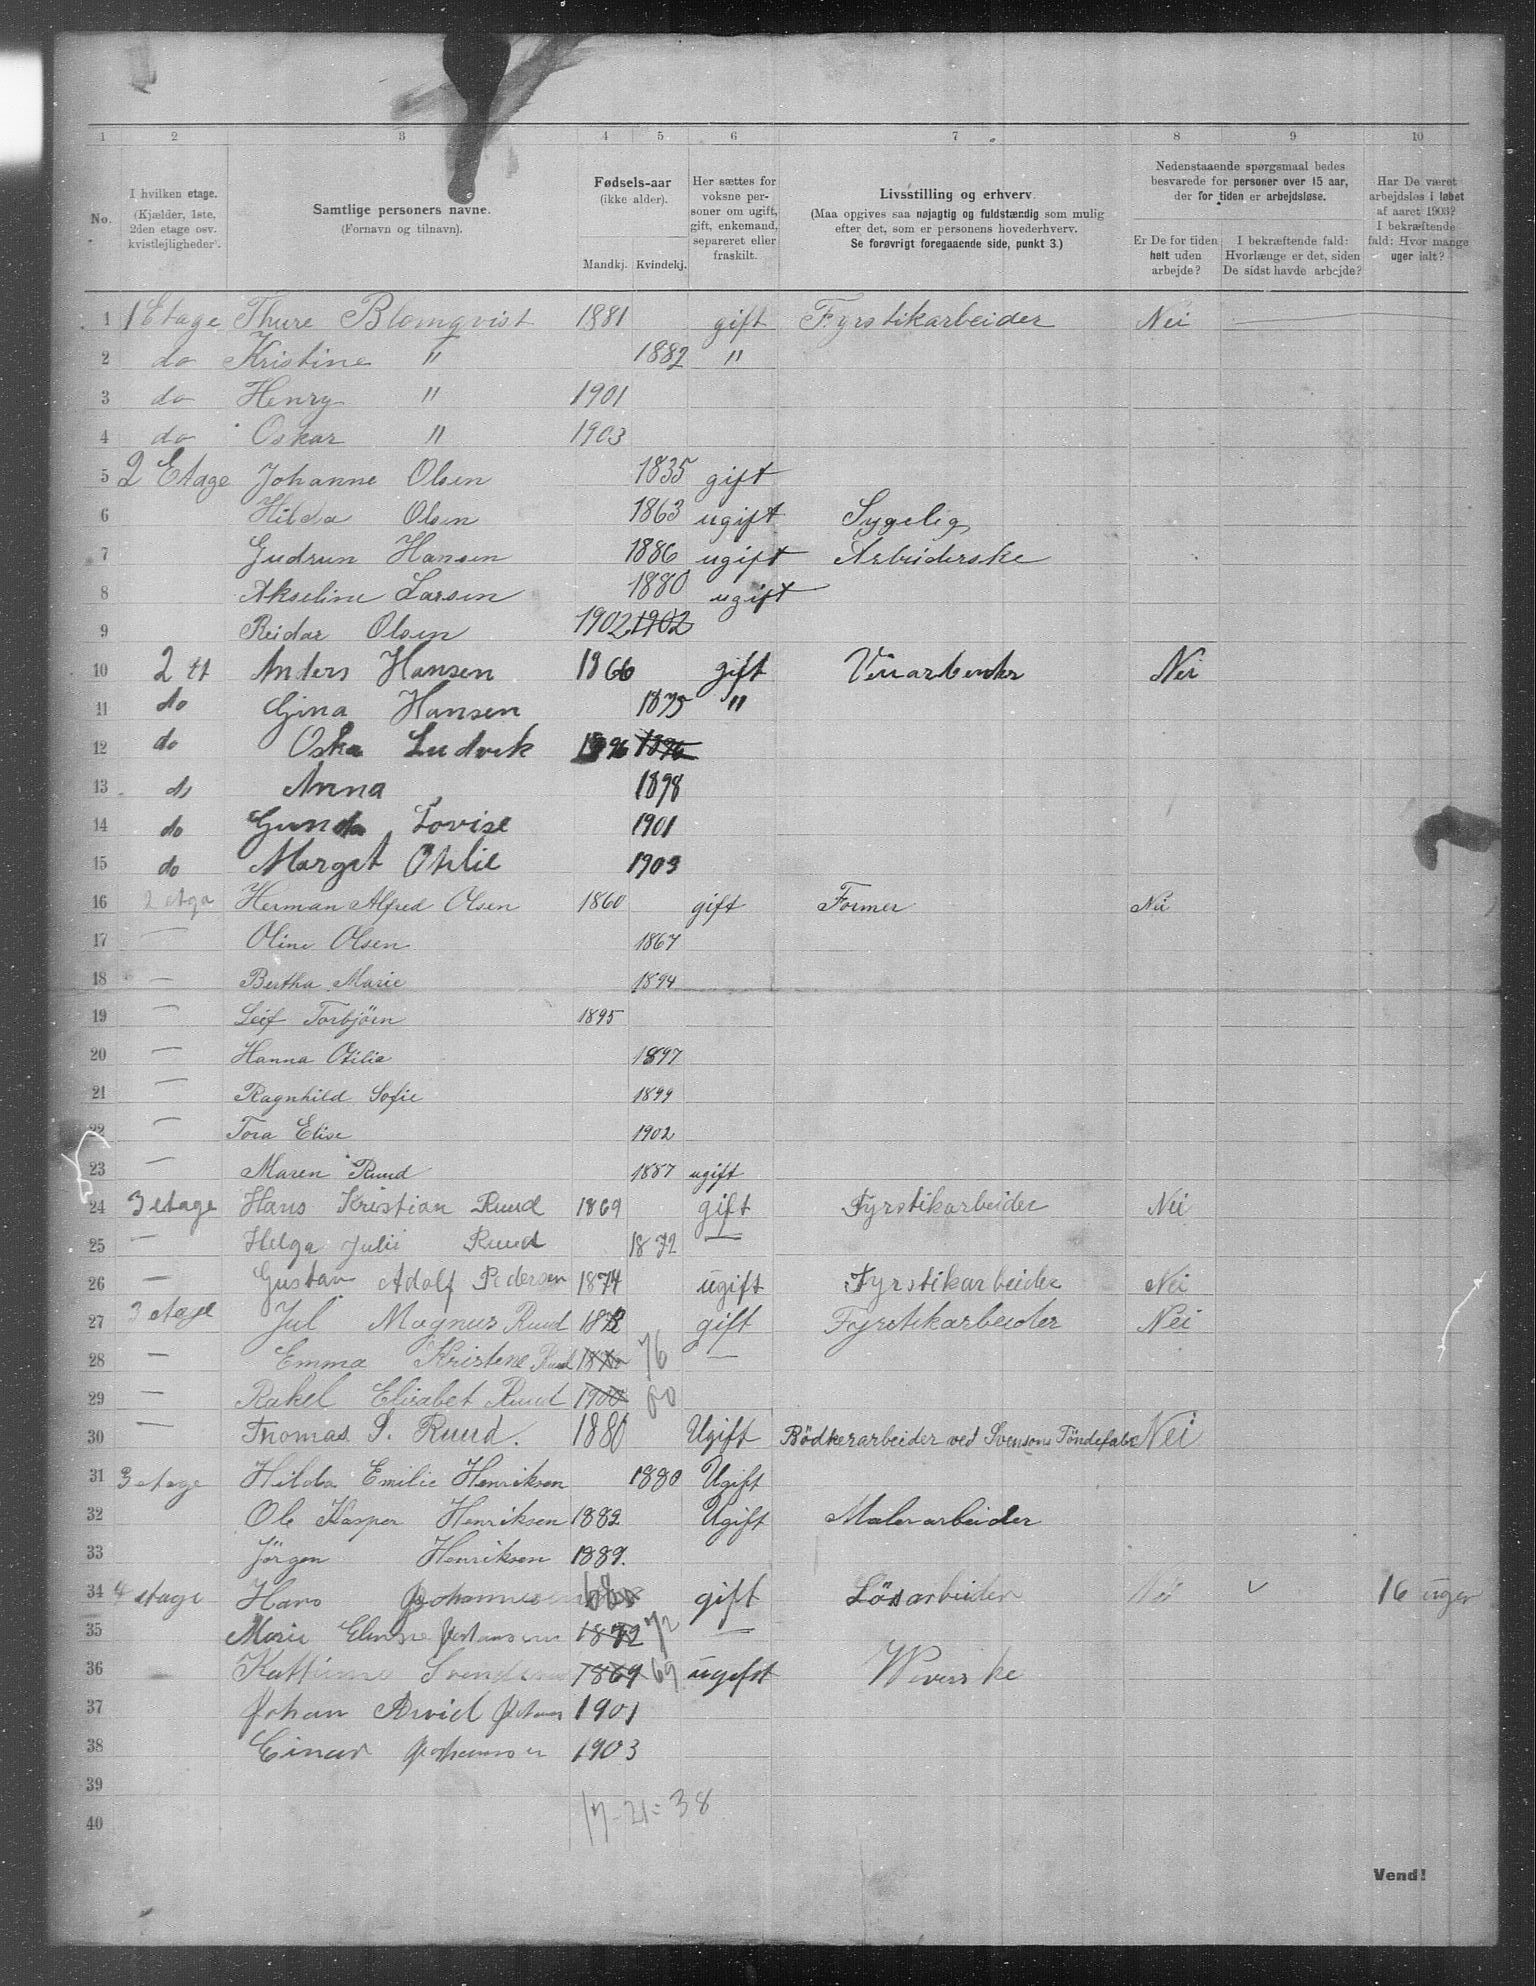 1 2 3 4 5 6 7 8 9 10
No.
I hvilken etage. (Kjælder, 1ste, 2den etage osv. kvistlejligheder).
Samtlige personers navne. (Fornavn og tilnavn).
Fødsels-aar (ikke alder).
Mandkj. Kvindekj.
Her sættes for voksne personer om ugift, gift, enkemand, separeret eller fraskilt.
Livsstilling og erhverv. (Maa opgives saa nøjagtig og fuldstændig som mulig efter det, som er personens hovederhverv. Se forøvrigt foregaaende side, punkt 3.)
Nedenstaaende spørgsmaal bedes besvarede for personer over 15 aar, der for tiden er arbejdsløse.
Er De for tiden helt uden arbejde?
I bekræftende fald: Hvorlænge er det, siden De sidst havde arbejde?
Har De været arbejdsløs i løbet af aaret 1903? I bekræftende fald: Hvor mange uger ialt?
1 1 Etage Thure Blomqvist 1881 gift Fyrstikarbeider Nei
2 do Kristine " 1882 "
3 do Henry " 1901
4 do Oskar " 1903
5 2 Etage Johanne Olsen 1835 gift
6 Hilda Olsen 1863 ugift Sygelig
7 Gudrun Hansen 1886 ugift Arbeiderske
8 Akseline Larsen 1880 ugift
9 Reidar Olsen 1902 1902
10 2 et Anders Hansen 1866 gift Nei
11 do Gina Hansen 1875 "
12 do Oska Ludvik 1896 1896
13 do Anna 1898
14 do Gunda Lovise 1901
15 do Margit Otilie 1903
16 2 etga Herman Alfred Olsen 1860 gift Former Nei
17 — Oline Olsen 1867
18 — Bertha Marie 1894
19 — Leif Torbjörn 1895
20 — Hanna Otilie 1897
21 — Ragnhild Sofie 1899
22 — Tora Elise 1902
23 — Maren Ruud 1887 ugift
24 3 etage Hans Kristian Ruud 1869 gift Fyrstikarbeider Nei
25 — Helga Julie Ruud 1872 —
26 — Gustav Adolf Pedersen 1874 ugift Fyrstikarbeider Nei
27 3 etage Jul Magnus Ruud 1878 gift Fyrstikarbeider Nei
28 — Emma Kristene Ruud 1876 76 —
29 — Rakel Elisabet Ruud 1900 00
30 — Thomas S. Ruud. 1880 Ugift Bödkerarbeider ved Svensons Töndefabr Nei
31 3 etage Hilda Emilie Henriksen 1880 Ugift
32 Ole Kasper Henriksen 1882 Ugift Malerarbeider
33 Jörgen Henriksen 1889.
34 4 etage Hans Johannesen 68 gift Lösarbeider Nei 16 uger
35 Marie Johansen 1872 72 —
36 Svendsen 1869 69 ugift Weverske
37 Johan Arvid 1901
38 Einar Johannsen 1903
39
40
17-21=38
Vend!